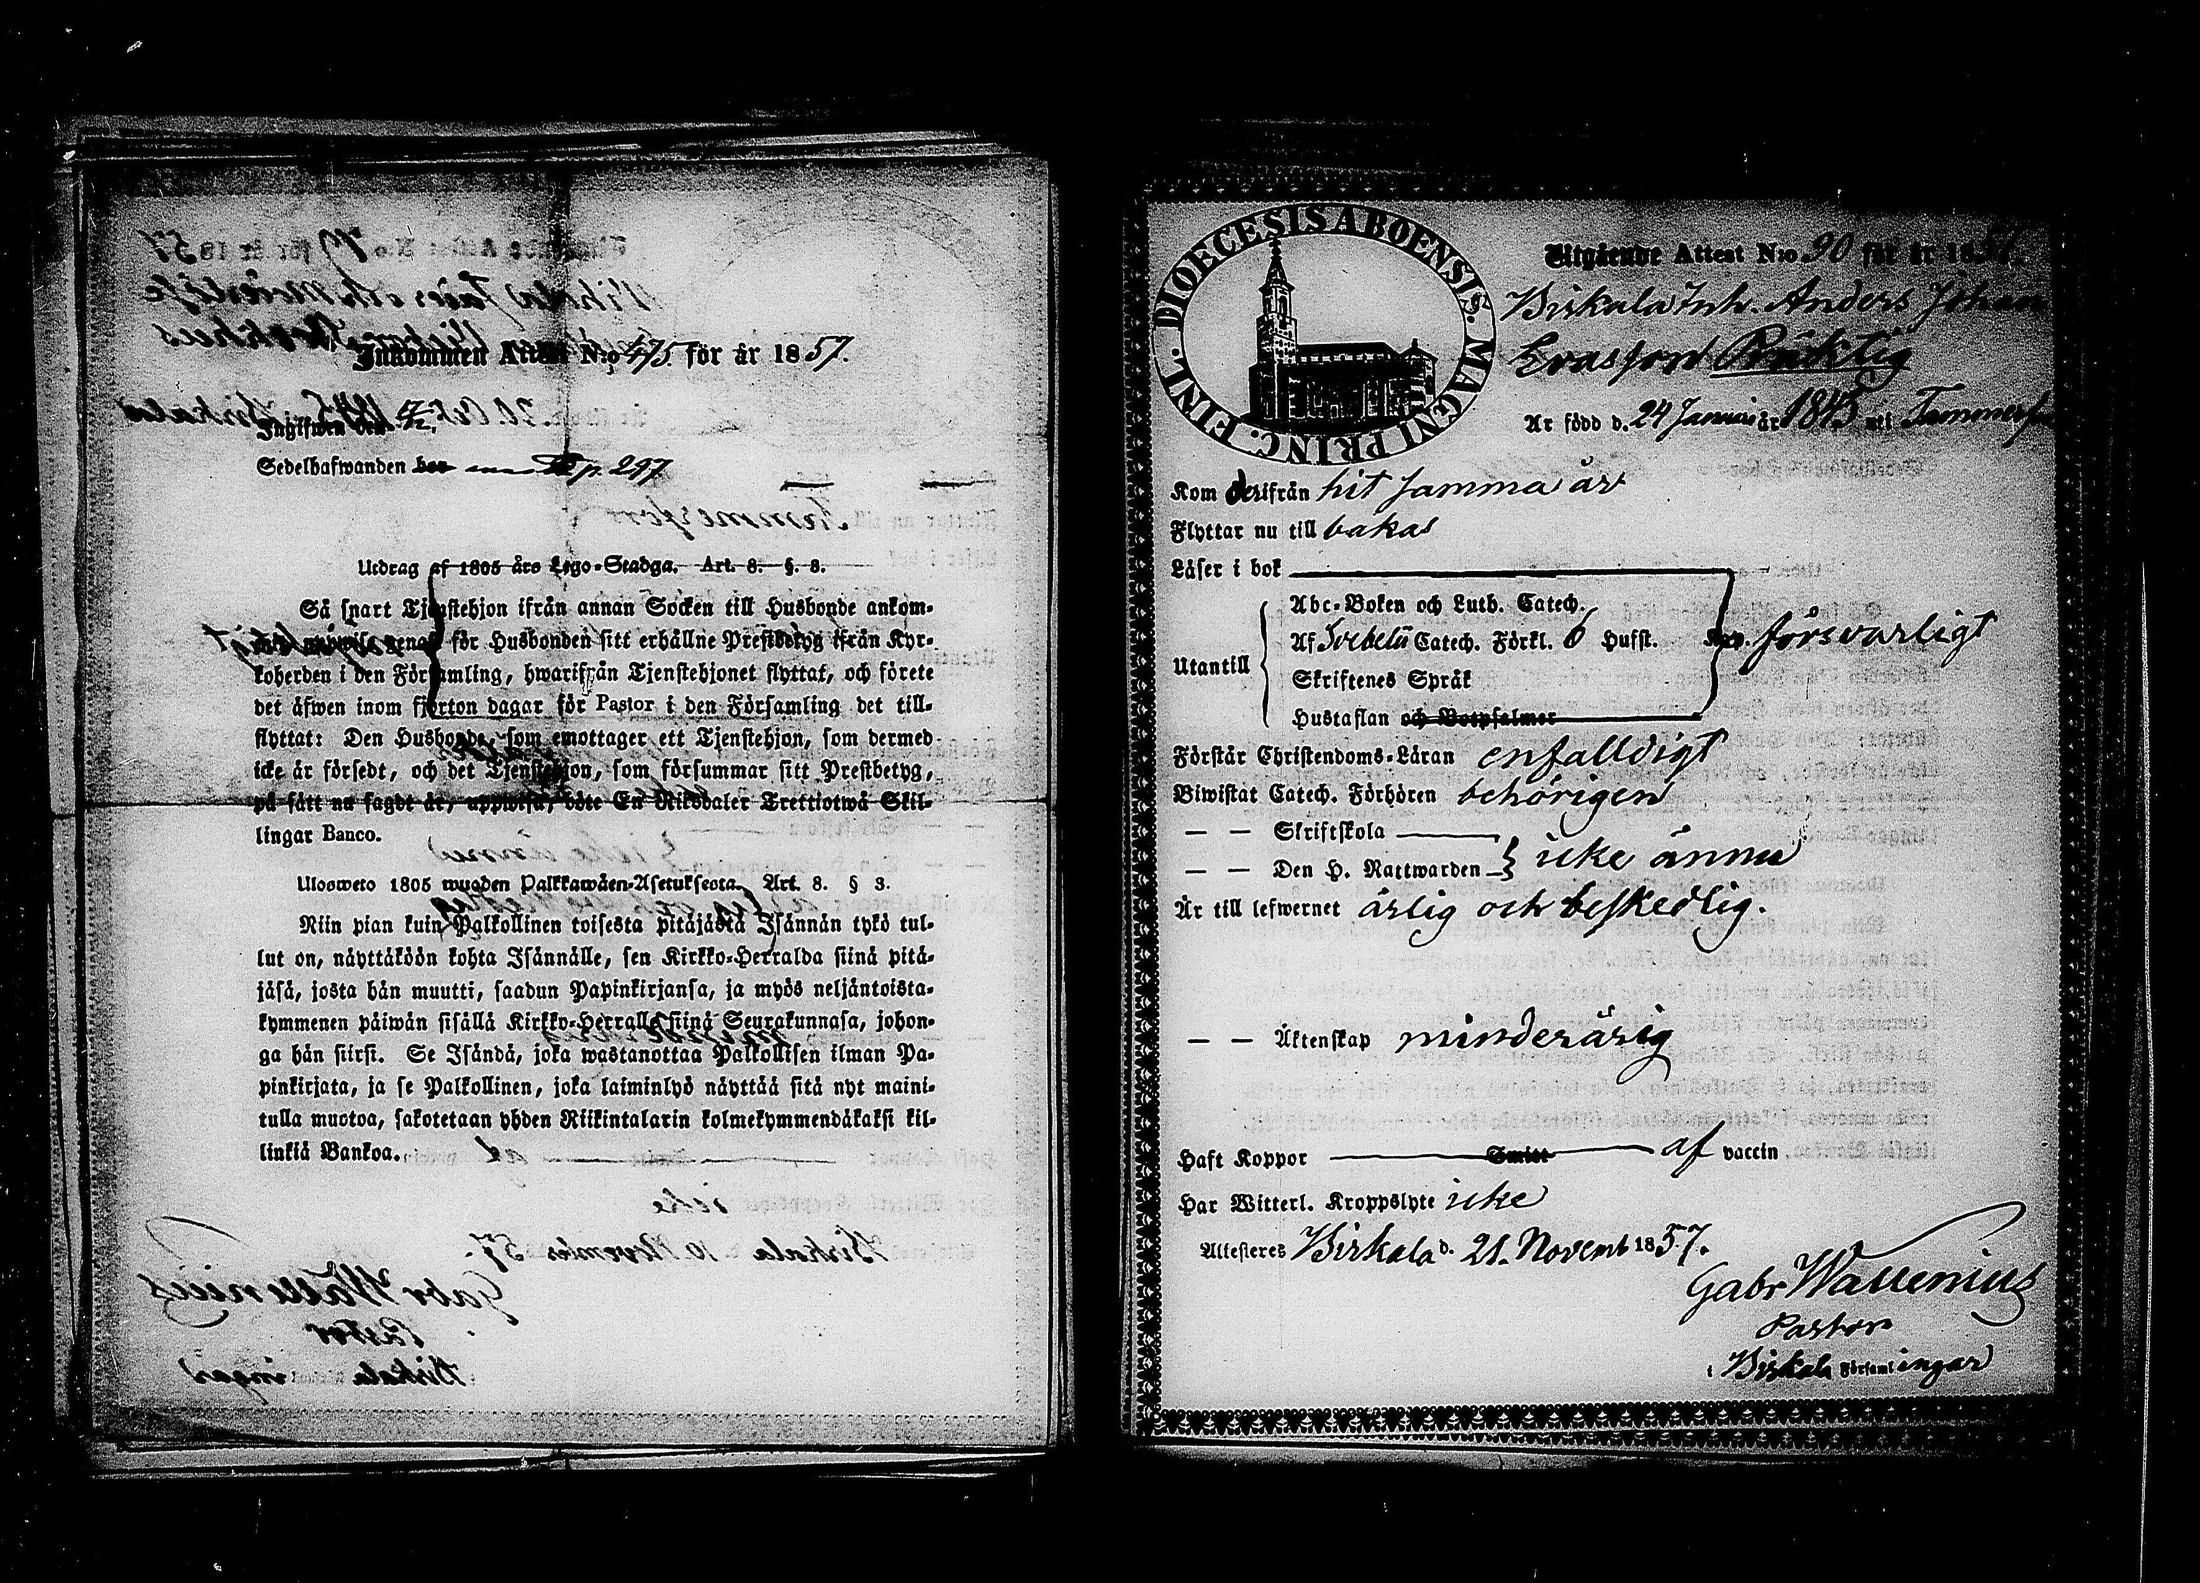 Inkommen Attest N:o 475. för år 1857.
Ingifwen den
Sedelhafwanden bor p. 297
Utdrag af 1805 års Lego-Stadga. Art. 8. §. 8.
Så snart Tjenstehjon ifrån annan Socken till Husbonde ankom-
genast för Husbonden sitt erhållne Prestbetyg ifrån Kyr-
koherden i den Församling, hwarifrån Tjenstehjonet flyttat, och förete
det äfwen inom fjorton dagar för Pastor i den Församling det till-
flyttat: Den Husbonde, som emottager ett Tjenstehjon, som dermed
icke är försedt, och det Tjenstehjon, som försummar sitt Prestbetyg,
på sätt nu sagdt är, uppwisa, böte En Riksdaler Trettiotwå Skil-
lingar Banco.
Ulosweto 1805 wuoden Palkkawäen-Asetuksesta. Art. 8. § 3.
Niin pian kuin Palkollinen toisesta pitäjästä Isännän tykö tul-
lut on, näyttäköön kohta Isännälle, sen Kirkko-Herralda siinä pitä-
jäsä, josta hän muutti, saadun Papinkirjansa, ja myös neljäntoista-
kymmenen päiwän sisällä Kirkko-Herralle siinä Seurakunnasa, johon-
ga hän siirsi. Se Isändä, joka wastanottaa Palkollisen ilman Pa-
pinkirjata, ja se Palkollinen, joka laiminlyö näyttää sitä nyt maini-
tulla muotoa, sakotetaan yhden Riikintalarin kolmekymmendäkaksi kil-
linkiä Bankoa.
DIOECESIS ABOENSIS. MAGNI PRINC. FINL.
Utgående Attest N:o 90 för år 1857.
Birkala Inh. Anders Johan
Evasson Präktig
Är född d. 24 Januari år 1843 uti Tammerfors
Kom derifrån hit samma år
Flyttar nu till bakas
Läser i bok
Utantill
Abc-Boken och Luth. Catech.
Af Svebelii Catech. Förkl. 6 Hufst. försvarligt
Skriftenes Språk
Hustaflan och Botpsalmer
Förstår Christendoms-Läran enfalldigt
Biwistat Catech. Förhören behörigen
— — Skriftskola
— — Den H. Nattwarden icke ännu
Är till lefwernet ärlig och beskedlig.
— — Äktenskap minderårig
Haft Koppor Smitt af vaccin
Har Witterl. Kroppslyte icke
Attesteres Birkala d. 21. Novemb 1857.
Gabr Wallenius
Pastor
i Birkala Församlingar